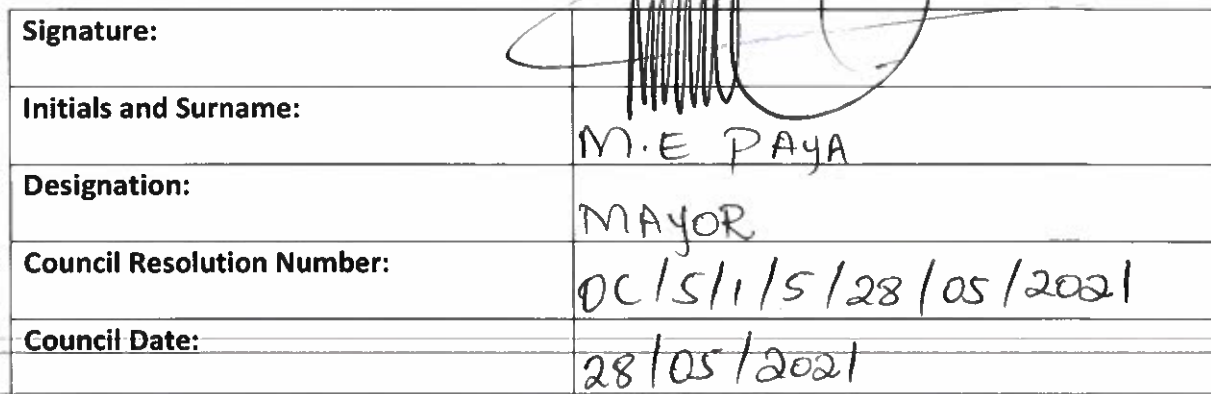 Signature:
Initials and Surname: M.E PAYA
Designation: MAYOR
Council Resolution Number: OC/5/1/5/28/05/2021
Council Date: 28/05/2021